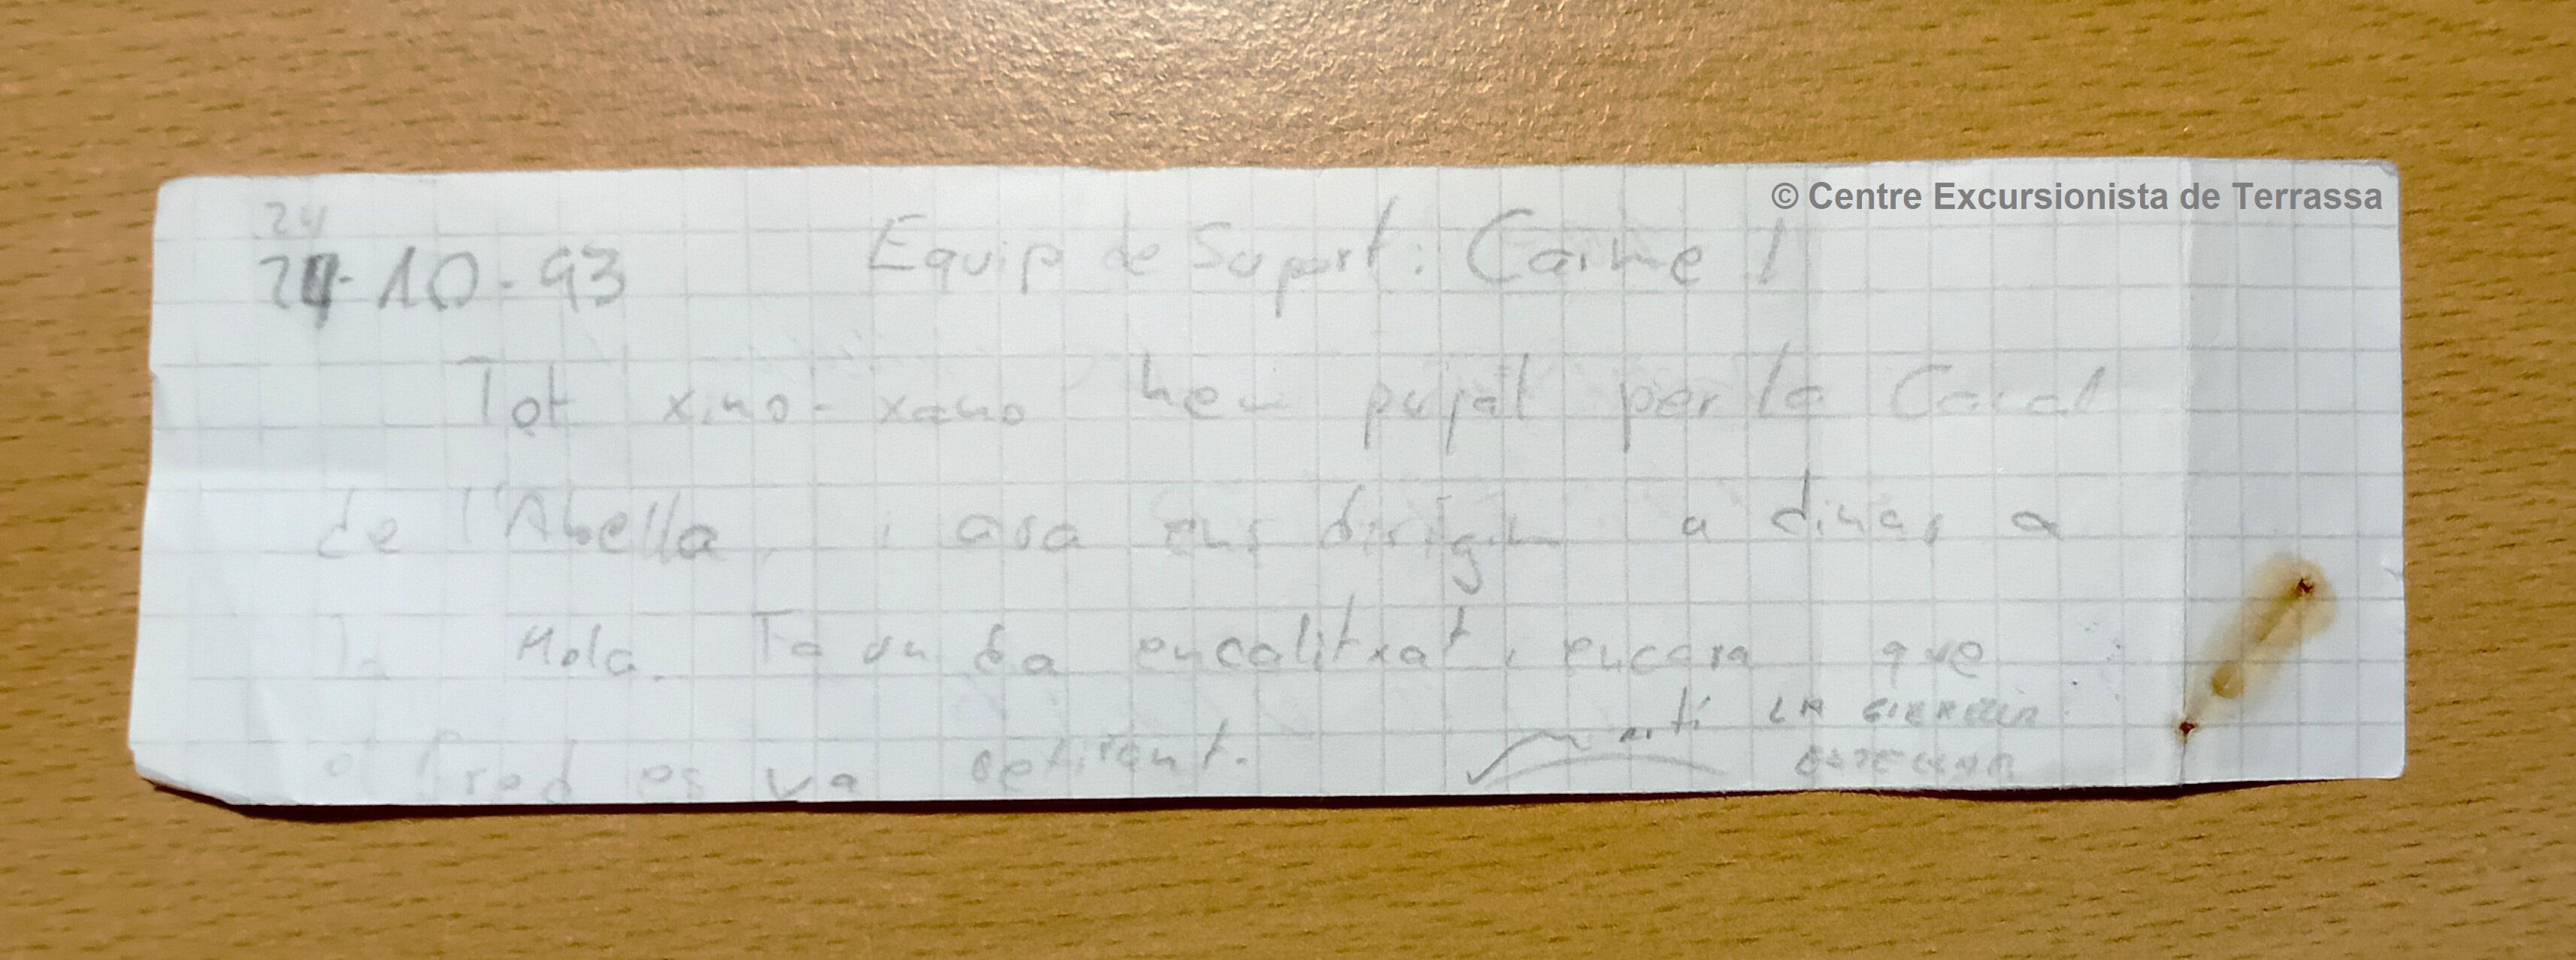 © Centre Excursionista de Terrassa
24
24-10-93 Equip de Suport: Carme
Tot xino-xano hem pujat per la Canal
de l'Abella, i ara ens dirigim a dinar a
la Mola. Fa un dia encalitxat, encara que
el fred es va retirant.